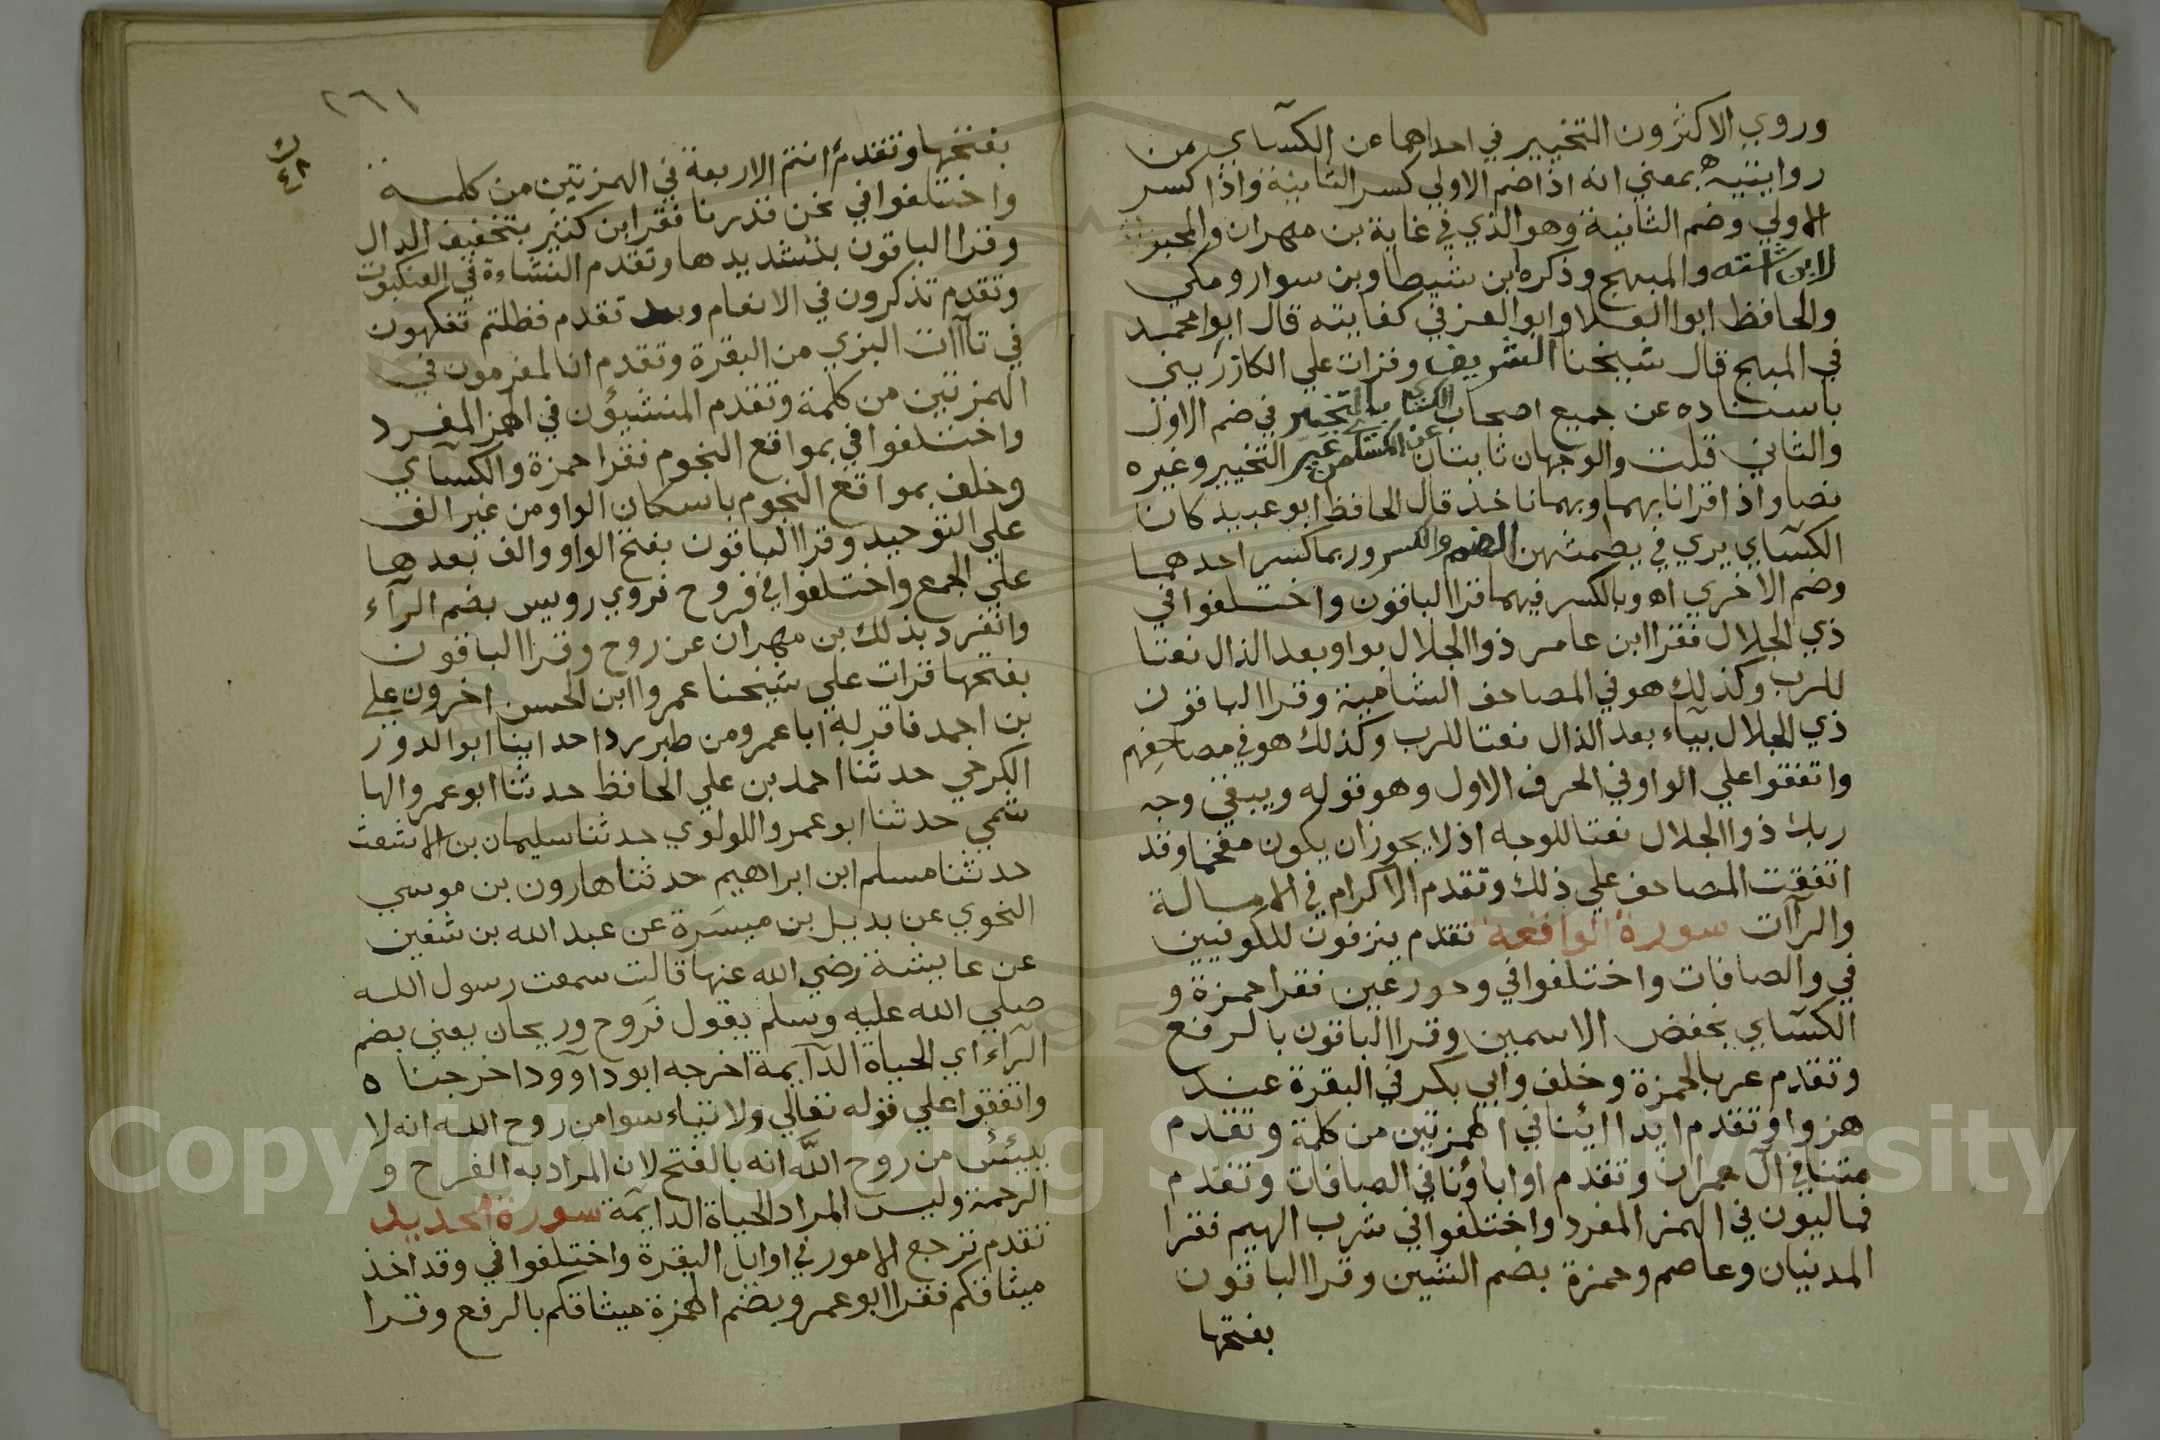 وروي الاكثرون التخيير في احداهما عن الكسآي من
روايتيه بمعني انه اذا ضم الاولي كسر الثانية واذا كسر
الاولي وضم الثانية وهو الذي في غاية بن مهران والمحبر
لابن اشته والمبهج وذكره ابن شيطا وبن سوار ومكي
والحافظ ابو االعلا وابو العز في كفايته قال ابوا محمد
في المبهج قال شيخنا الشريف وقرات علي الكازريني
باسناده عن جميع اصحاب الكسآي بالتخيير في ضم الاول
والثاني قلت والوجهان ثابتان عن الكسآي من غير التخيير وغيره
نصا واذا قرانا بهما وبهما ناخذ قال الحافظ ابو عبيد كان
الكسآي يري في يطمثهن الضم والكسر وربما كسر احدهما
وضم الاخري اه وبالكسر فيهما قرا الباقون واختلفوا في
ذي الجلال فقرا ابن عامر ذوا الجلال بواو بعد الذال نعتا
للرب وكذلك هو في المصاحف الشامية وقرا الباقون
ذي الجلال بيآء بعد الذال نعتا للرب وكذلك هو في مصاحفهم
واتفقوا علي الواو في الحرف الاول وهو قوله ويبقي وجه
ربك ذوا الجلال نعتا للوجه اذ لا يجوز ان يكون مقحما وقد
اتفقت المصاحف علي ذلك وتقدم الاكرام في الامالة
والرآات سورة الواقعة تقدم ينزفون للكوفيين
في والصافات واختلفوا في وحور عين فقرا حمزة و
الكسآي بخفض الاسمين وقرا الباقون بالرفع
وتقدم عربا لحمزة وخلف وابي بكر في البقرة عند
هزوا وتقدم ايذا ائنا في الهمزتين من كلمة وتقدم
متنا في آل عمران وتقدم اواباؤنا في الصافات وتقدم
فماليون في الهمز المفرد واختلفوا في شرب الهيم فقرا
المدنيان وعاصم وحمزة بضم الشين وقرا الباقون
بفتحها
٢٦١
بفتحها وتقدم أانتم الاربعة في الهمزتين من كلمة
واختلفوا في نحن قدرنا فقرا بن كثير بتخفيف الدال
وقرا الباقون بتشديدها وتقدم النشاءة في العنكبوت
وتقدم تذكرون في الانعام وتقدم فظلتم تفكهون
في تآآت البزي من البقرة وتقدم انا لمغرمون في
الهمزتين من كلمة وتقدم المنشيؤن في الهمز المفرد
واختلفوا في بمواقع النجوم فقرا حمزة والكسآي
وخلف بمواقع النجوم باسكان الواو من غير الف
علي التوحيد وقرا الباقون بفتح الواو والف بعدها
علي الجمع واختلفوا في فروح فروي رويس بضم الرآء
وانفرد بذلك بن مهران عن روح وقرا الباقون
بفتحها قرات علي شيخنا عمروا ابن الحسن اخرون علي
بن احمد فاقر به ابا عمرو من طبررد احد ابنا ابو الدوز
الكرخي حدثنا احمد بن علي الحافظ حدثنا ابو عمر والها
شمي حدثنا ابو عمرو اللولوي حدثنا سليمان بن الاشعث
حدثنا مسلم ابن ابراهيم حدثنا هارون بن موسي
النحوي عن بديل بن ميسَرة عن عبد الله بن شقين
عن عايشة رضي الله عنها قالت سمعت رسول الله
صلي الله عليه وسلم يقول فَروح وريحان يعني بضم
الرآء اي الحياة الدآيمة اخرجه ابو دآوود اخرجنا ه
واتفقوا علي قوله تعالي ولا تيئاسوا من روح الله انه لا
ييئس من روح اللَّه انه بالفتح لان المراد به الفرح و
الرحمة وليس المراد الحياة الدايمة سورة الحديد
تقدم ترجع الامور في اوايل البقرة واختلفوا في وقد اخذ
ميثاقكم فقرا ابو عمرو بضم الهمزة ميثاقكم بالرفع وقرا
Copyright © King Saud University